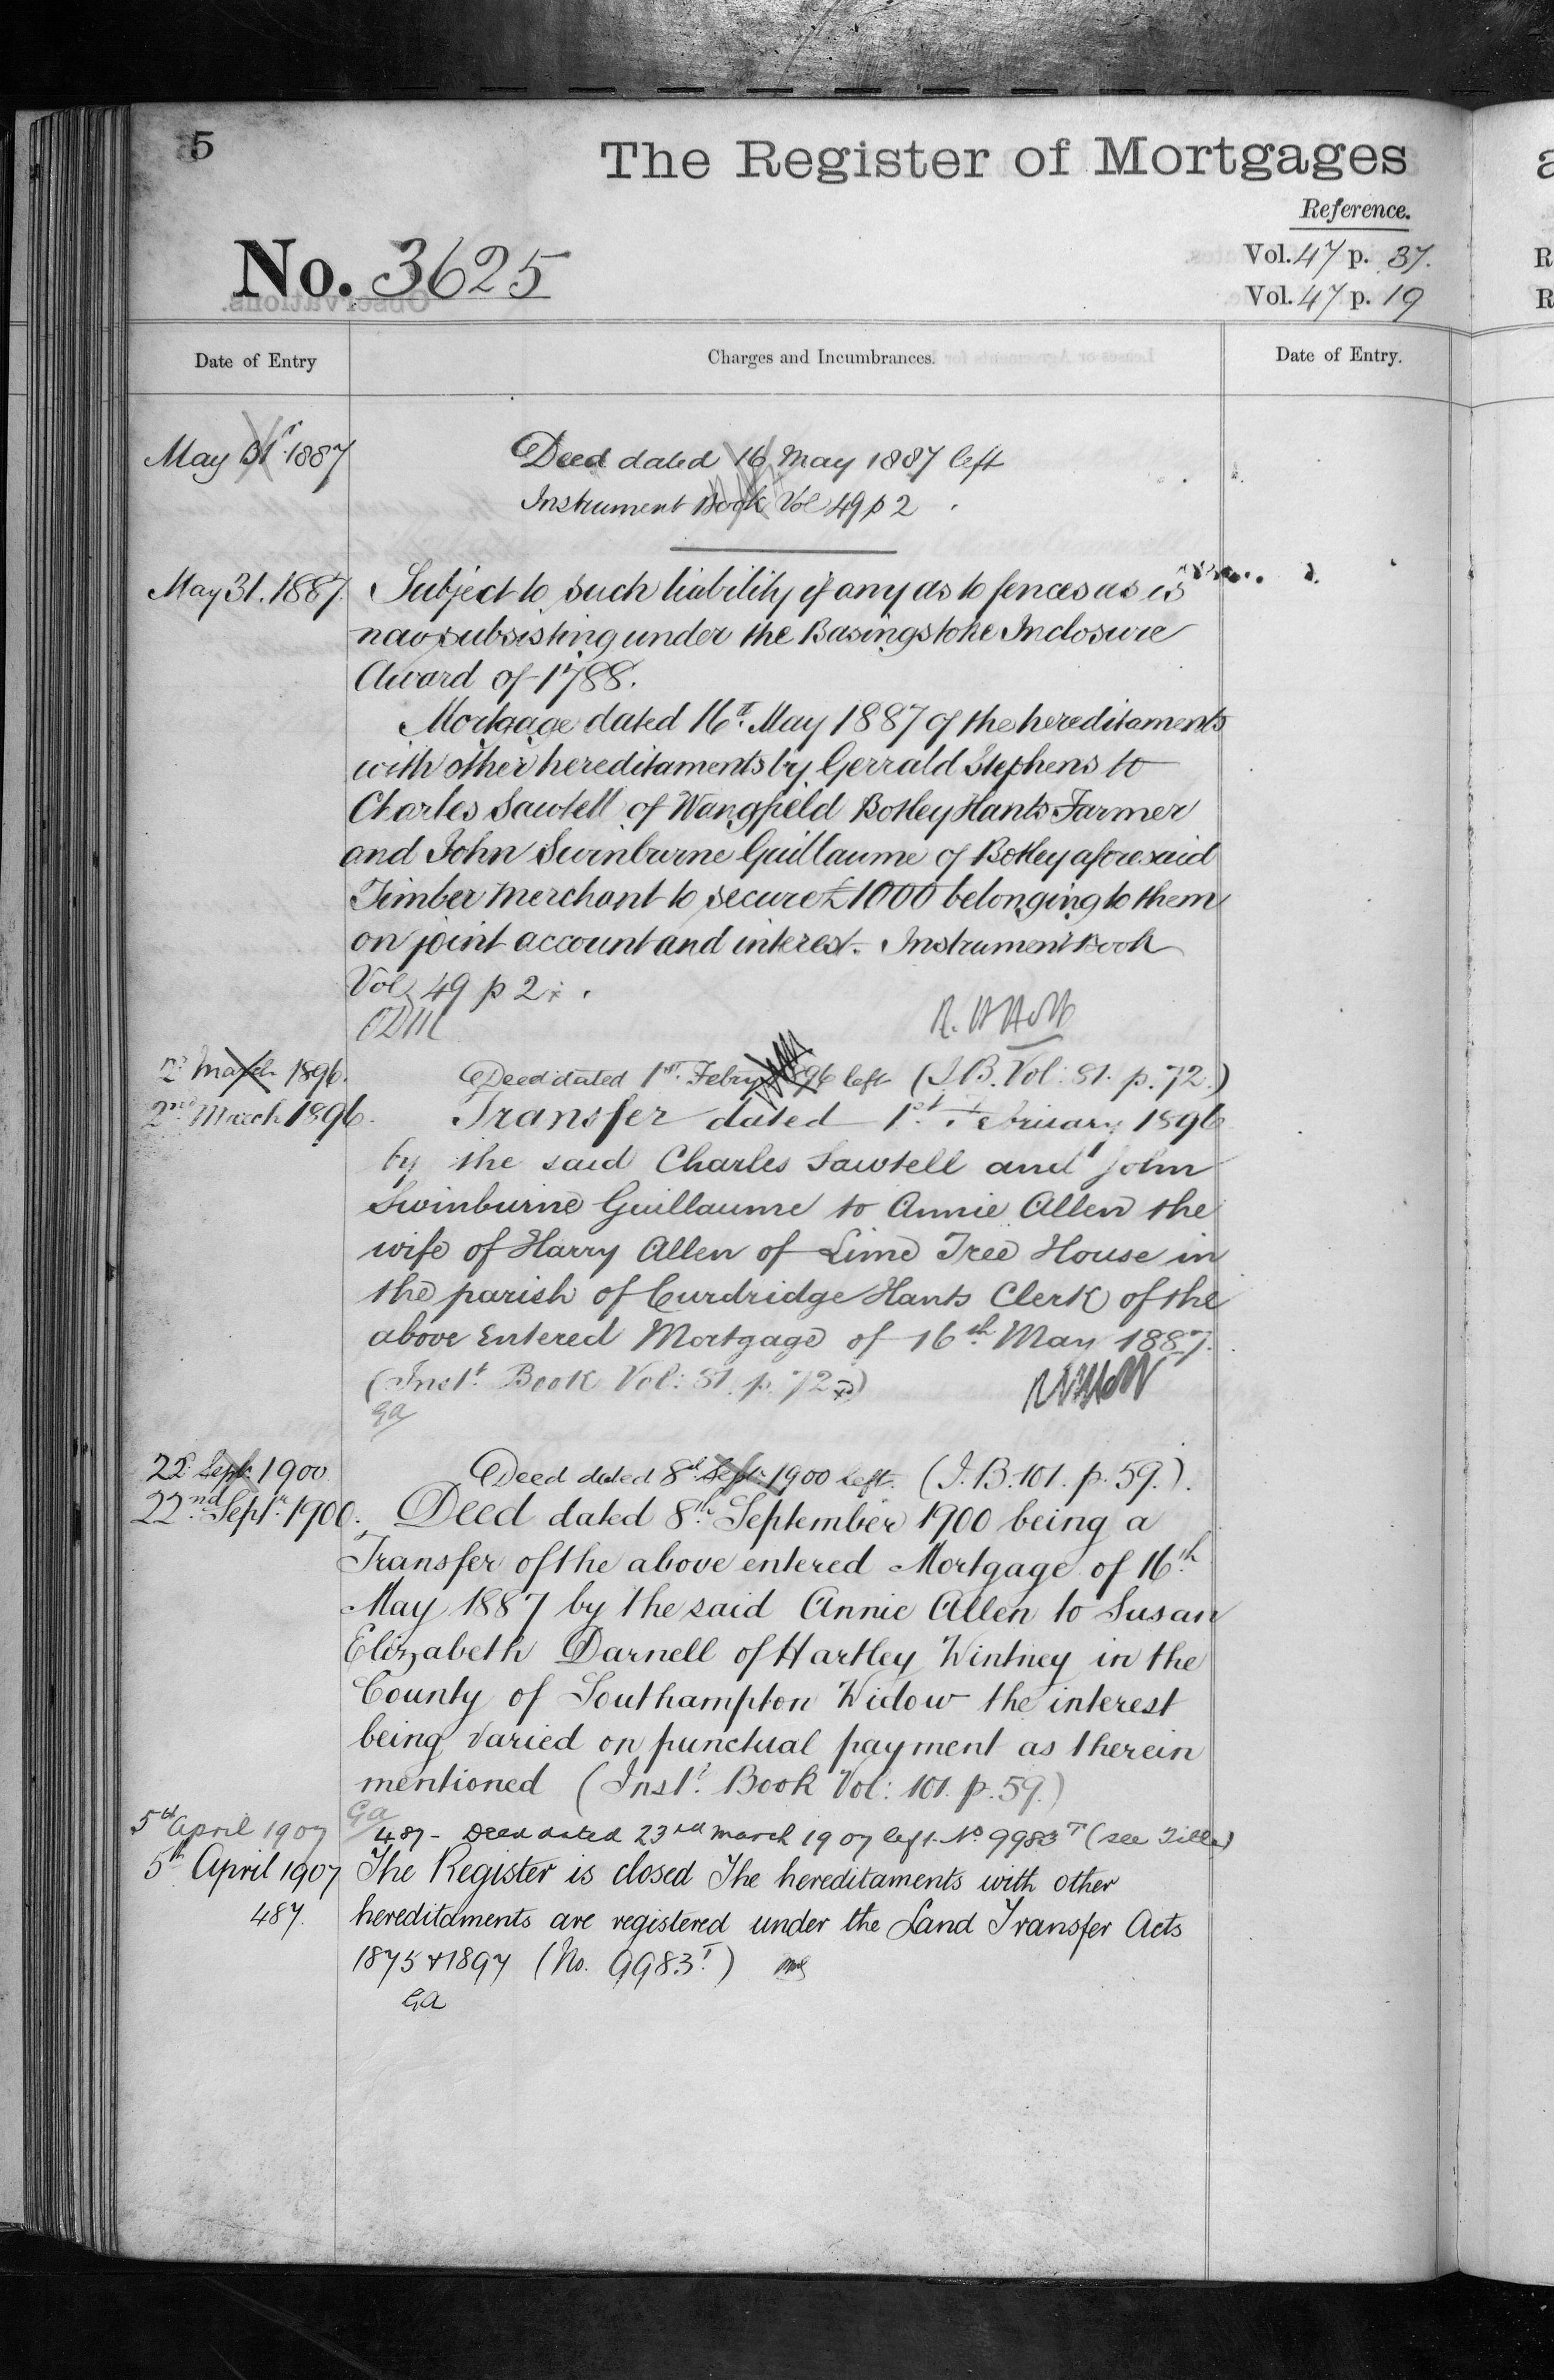 5
The Register of Mortgages
Reference.
No. 3625
Vol. 47 p. 37.
Vol. 47 p. 19
Date of Entry
Charges and Incumbrances.
Date of Entry.
May 31st 1887
Deed dated 16 May 1887 left
Instrument Book Vol 49 p 2
May 31. 1887.
Subject to such liability if any as to fences as is
now subsisting under the Basingstoke Inclosure
Award of 1788.
Mortgage dated 16th May 1887 of the hereditaments
with other hereditaments by Gerrald Stephens to
Charles Sawtell of Wangfield Botley Hants Farmer
and John Swinburne Guillaume of Botley aforesaid
Timber Merchant to secure £1000 belonging to them
on joint account and interest. Instrument Book
Vol 49 p 2
2d March 1896.
Deed dated 1st Febry 1896 left (I.B. Vol: 81. p. 72.)
2nd March 1896.
Transfer dated 1st February 1896
by the said Charles Sawtell and John
Swinburne Guillaume to Annie Allen the
wife of Harry Allen of Lime Tree House in
the parish of Curdridge Hants Clerk of the
above Entered Mortgage of 16th May 1887.
(Inst. Book Vol: 81. p. 72)
GA
22d Sept. 1900
Deed dated 8th Sept. 1900 left. (I.B. 101. p. 59.).
22nd Septr. 1900.
Deed dated 8th September 1900 being a
Transfer of the above entered Mortgage of 16th
May 1887 by the said Annie Allen to Susan
Elizabeth Darnell of Hartley Wintney in the
County of Southampton Widow the interest
being varied on punctual payment as therein
mentioned (Inst. Book Vol: 101. p. 59.)
GA
5th April 1907
487 - Deed dated 23rd March 1907 left. No 9983T (see Title)
5th April 1907
The Register is closed The hereditaments with other
487.
hereditaments are registered under the Land Transfer Acts
1875 & 1897 (No. 9983T.)
GA